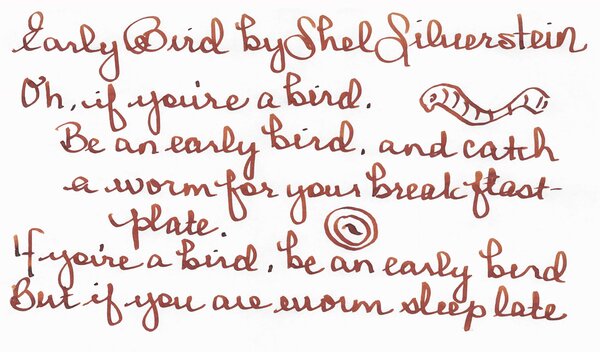 Early Bird by Shel Silverstein
Oh, if you're a bird.
Be an early bird. and catch
a worm for your breakftast-
plate.
If you're a bird, be an early berd
But if you are worm sleep late